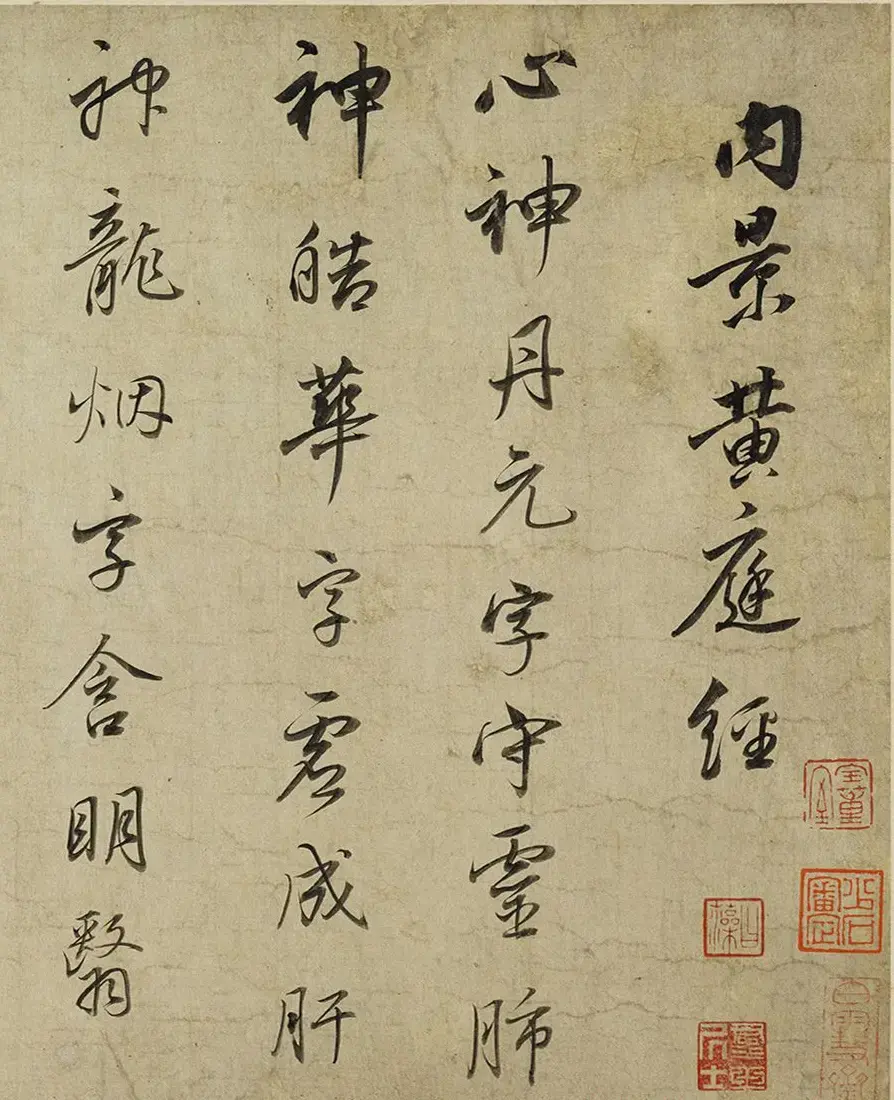 內景黃庭經
心神丹元字守靈肺
神皓華字虛成肝
神龍烟字含明翳